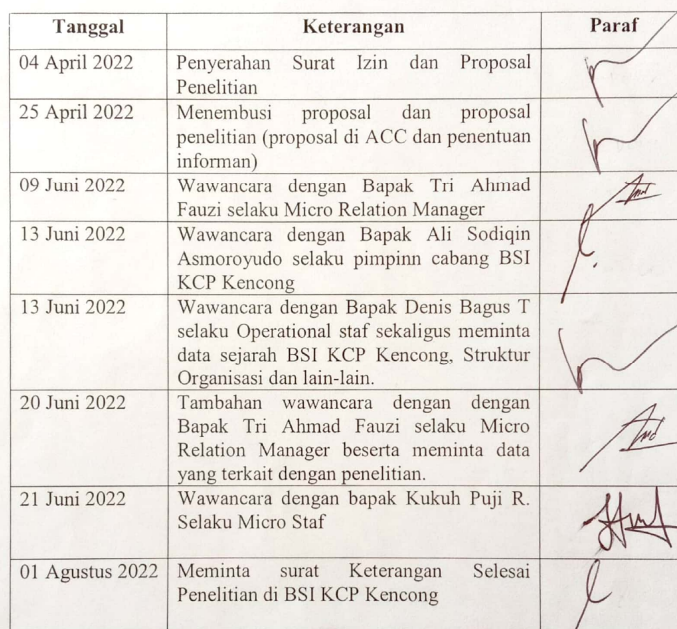 Tanggal Keterangan Paraf
04 April 2022 Penyerahan Surat Izin dan Proposal
Penelitian
25 April 2022 Menembusi proposal dan proposal
penelitian (proposal di ACC dan penentuan
informan)
09 Juni 2022 Wawancara dengan Bapak Tri Ahmad
Fauzi selaku Micro Relation Manager
13 Juni 2022 Wawancara dengan Bapak Ali Sodiqin
Asmoroyudo selaku pimpinn cabang BSI
KCP Kencong
13 Juni 2022 Wawancara dengan Bapak Denis Bagus T
selaku Operational staf sekaligus meminta
data sejarah BSI KCP Kencong, Struktur
Organisasi dan lain-lain.
20 Juni 2022 Tambahan wawancara dengan dengan
Bapak Tri Ahmad Fauzi selaku Micro
Relation Manager beserta meminta data
yang terkait dengan penelitian.
21 Juni 2022 Wawancara dengan bapak Kukuh Puji R.
Selaku Micro Staf
01 Agustus 2022 Meminta surat Keterangan Selesai
Penelitian di BSI KCP Kencong